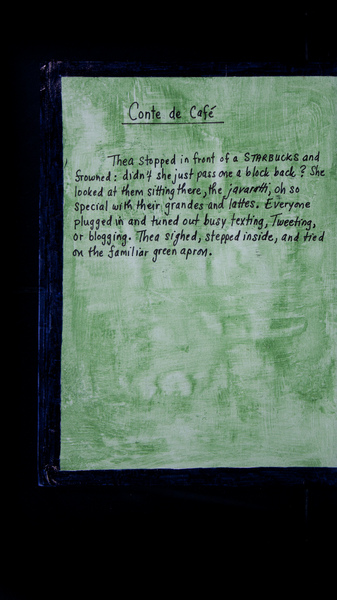 Conte de Café
Thea stopped in front of a STARBUCKS and
frowned: didn't she just pass one a block back? She
looked at them sitting there, the javarotti, oh so
special with their grandes and lattes. Everyone
plugged in and tuned out busy texting, Tweeting,
or blogging. Thea sighed, stepped inside, and tied
on the familiar green apron.